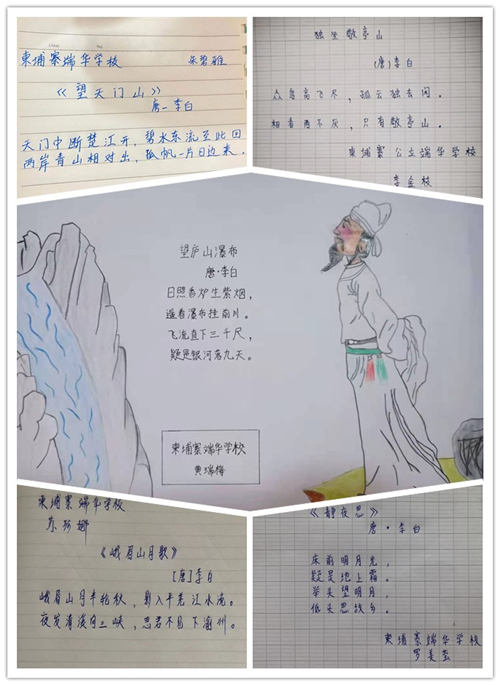 柬埔寨端华学校 朱碧雅
《望天门山》
唐-李白
天门中断楚江开，碧水东流至此回
两岸青山相对出，孤帆一片日边来。
独坐敬亭山
(唐)李白
众鸟高飞尽，孤云独去闲。
相看两不厌，只有敬亭山。
柬埔寨公立端华学校
李金枝
望庐山瀑布
唐·李白
日照香炉生紫烟，
遥看瀑布挂前川。
飞流直下三千尺，
疑是银河落九天。
柬埔寨端华学校
黄瑞梅
柬埔寨端华学校
苏娜
《峨眉山月歌》
[唐]李白
峨眉山月半轮秋，影入平羌江水流。
夜发清溪向三峡，思君不见下渝州。
《静夜思》
唐·李白
床前明月光，
疑是地上霜。
举头望明月，
低头思故乡。
柬埔寨端华学校
罗美莹